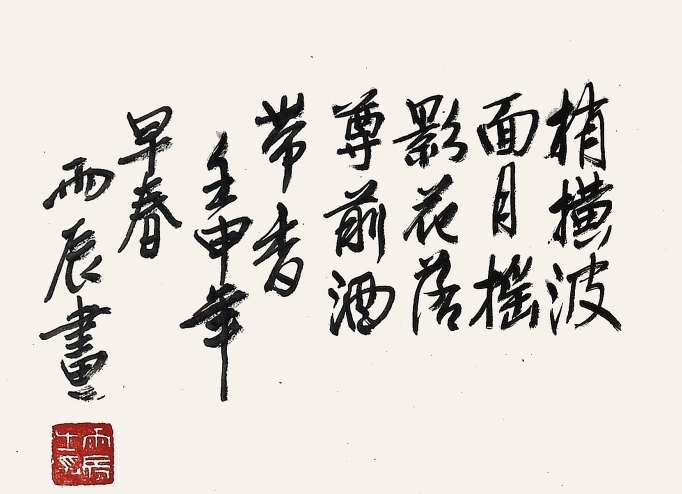 梢橫波
面月摇
影花落
尊前酒
带香
壬申年
早春
雨辰畫